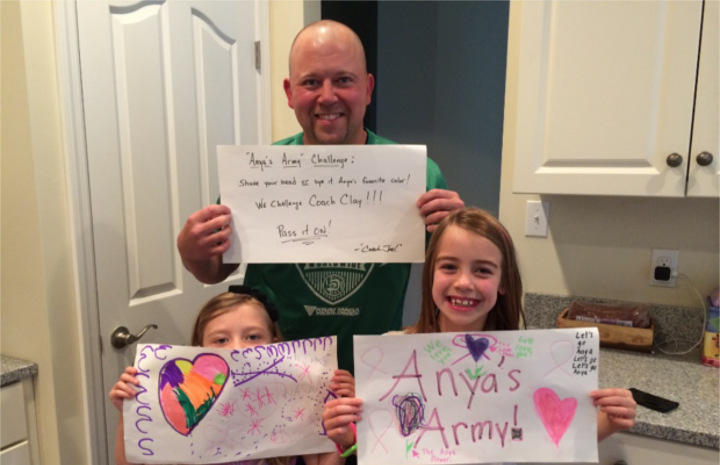 "Anya's Army" Challenge:
Shave your head or dye it Anya's favorite color!
We Challenge Coach Clay!!!
Pass it ON!
-"Coach Joel"
We love
Let's
go
Anya
Let's go
Let's go
Anya
Anya's
Army!
The Anya
Power